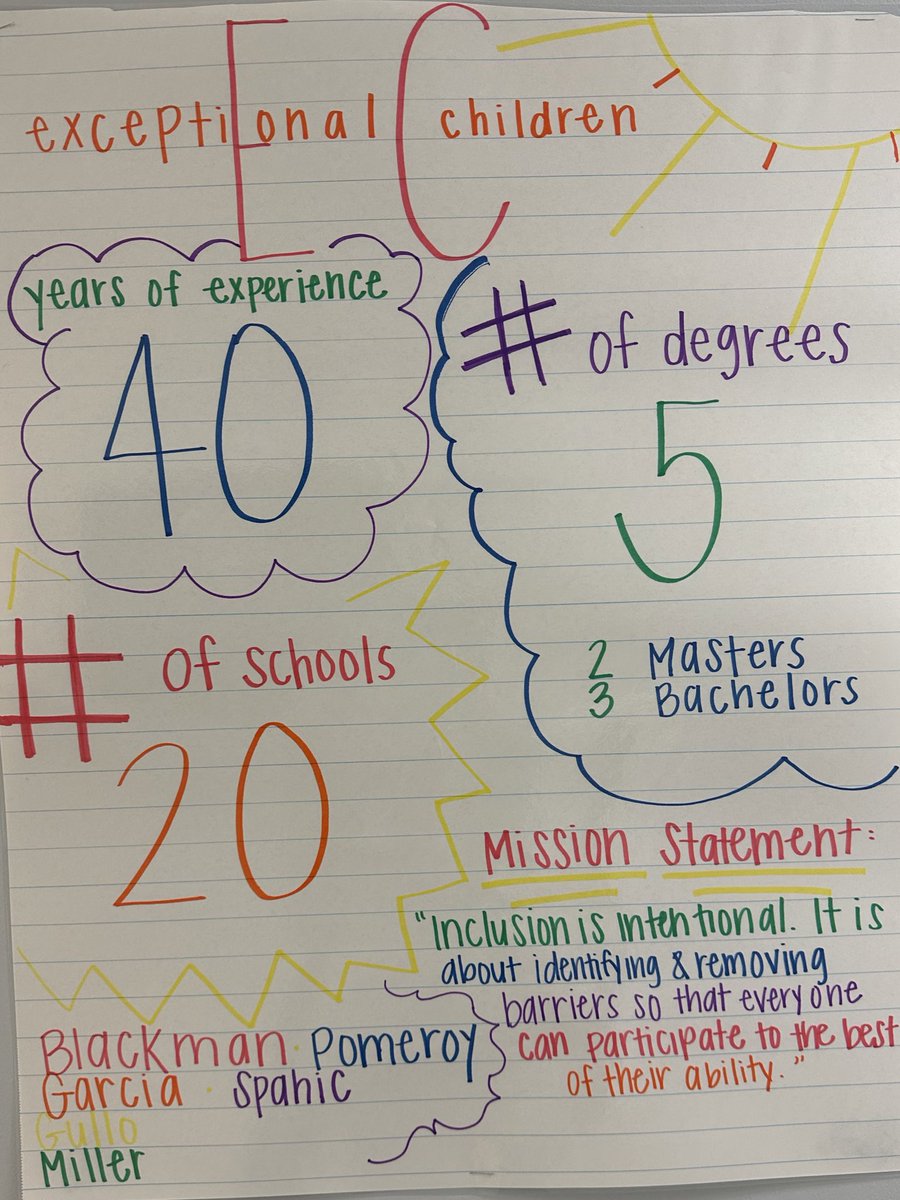 exceptional children
E C
years of experience
40
# of degrees
5
2 Masters
3 Bachelors
# of schools
20
Mission Statement:
"Inclusion is intentional. It is
about identifying & removing
barriers so that everyone
can participate to the best
of their ability."
Blackman · Pomeroy
Garcia · Spahic
Gullo
Miller